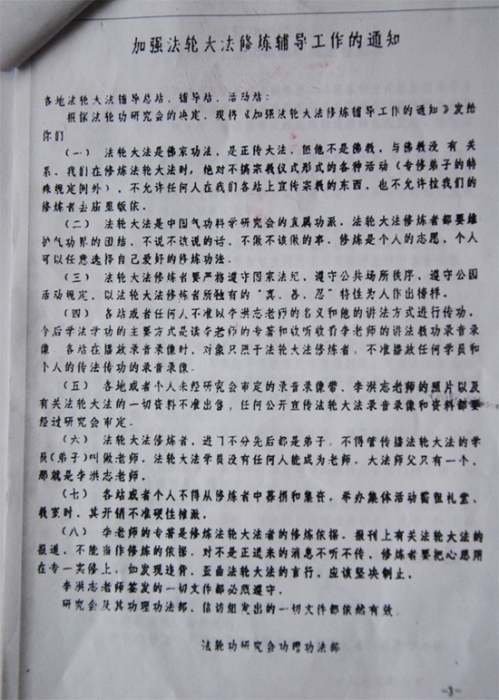 加强法轮大法修炼辅导工作的通知
各地法轮大法辅导总站、辅导站、活动站:
根据法轮功研究会的决定,现将《加强法轮大法修炼辅导工作的通知》发给
你们
(一) 法轮大法是佛家功法,是正传大法,但他不是佛教,与佛教没 有 关
系,我们在修炼法轮大法时,绝对不搞宗教仪式形式的各种活动(专修弟子的特
殊规定例外),不允许任何人在我们各站上宣传宗教的东西,也不允许拉我们的
修炼者去庙里皈依。
(二) 法轮大法是中国气功科学研究会的直属功派,法轮大法修炼者都要维
护气功界的团结,不说不该说的话,不做不该做的事,修炼是个人的志愿,个人
可以任意选择自己爱好的修炼功法。
(三) 法轮大法修炼者要严格遵守国家法纪,遵守公共场所秩序,遵守公园
活动规定,以法轮大法修炼者所独有的“真、善、忍”特性为人作出榜样。
(四) 各站或者任何人不准以李洪志老师的名义和他的讲法方式进行传功,
今后学法学功的主要方式是读李老师的专著和收听收看李老师的讲法教功录音录
像 各站在播放录音录像时,对象只限于法轮大法修炼者,不准播放任何学员和
个人的传法传功的录音录像。
(五) 各地或者个人未经研究会审定的录音录像带、李洪志老师的照片以及
有关法轮大法的一切资料不准出售,任何公开宣传法轮大法录音录像和资料都要
经过研究会审定。
(六) 法轮大法修炼者,进门不分先后都是弟子,不得管传播法轮大法的学
员(弟子)叫做老师,法轮大法学员没有任何人能成为老师,大法师父只有一个,
那就是李洪志老师。
(七) 各站或者个人不得从修炼者中募捐和集资,举办集体活动需租礼堂、
教室时,其开销不准硬性摊派。
(八) 李老师的专著是修炼法轮大法者的修炼依据,报刊上有关法轮大法的
报道,不能当作修炼的依据,对不是正道来的消息不听不传,修炼者要把心思用
在专一实修上,如发现违背、歪曲法轮大法的言行,应该坚决制止。
李洪志老师签发的一切文件都必须遵守。
研究会及其功理功法部、信访组发出的一切文件都依然有效
法轮功研究会功理功法部
-3-